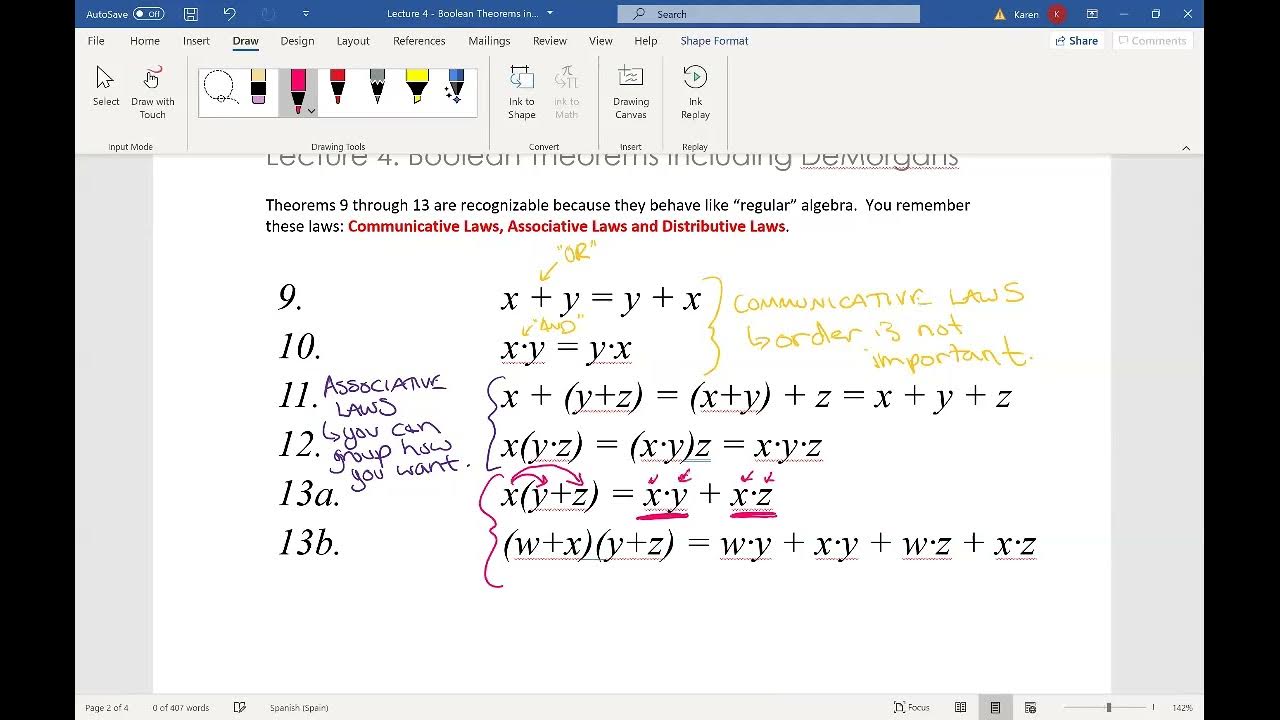 AutoSave Off Lecture 4 - Boolean Theorems in... Search Karen K
File Home Insert Draw Design Layout References Mailings Review View Help Shape Format Share Comments
Select Draw with Touch Ink to Shape Ink to Math Drawing Canvas Ink Replay
Input Mode Drawing Tools Convert Insert Replay
Lecture 4: Boolean Theorems Including DeMorgans
Theorems 9 through 13 are recognizable because they behave like “regular” algebra. You remember
these laws: Communicative Laws, Associative Laws and Distributive Laws.
"OR"
9. x + y = y + x
"AND"
10. x·y = y·x
COMMUNICATIVE LAWS
↳ order is not
important.
11. x + (y+z) = (x+y) + z = x + y + z
12. x(y·z) = (x·y)z = x·y·z
ASSOCIATIVE
LAWS
↳ you can
group how
you want.
13a. x(y+z) = x·y + x·z
13b. (w+x)(y+z) = w·y + x·y + w·z + x·z
Page 2 of 4 0 of 407 words Spanish (Spain) Focus 142%